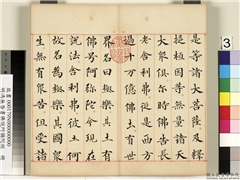 是等諸大菩薩及釋
提桓因等無量諸天
大眾俱爾時佛告長
老舍利弗從是西方
過十萬億佛土有世
界名曰極樂其土有
佛號阿彌陀今現在
說法舍利弗彼土何
故名為極樂其國眾
生無有眾苦但受諸
3